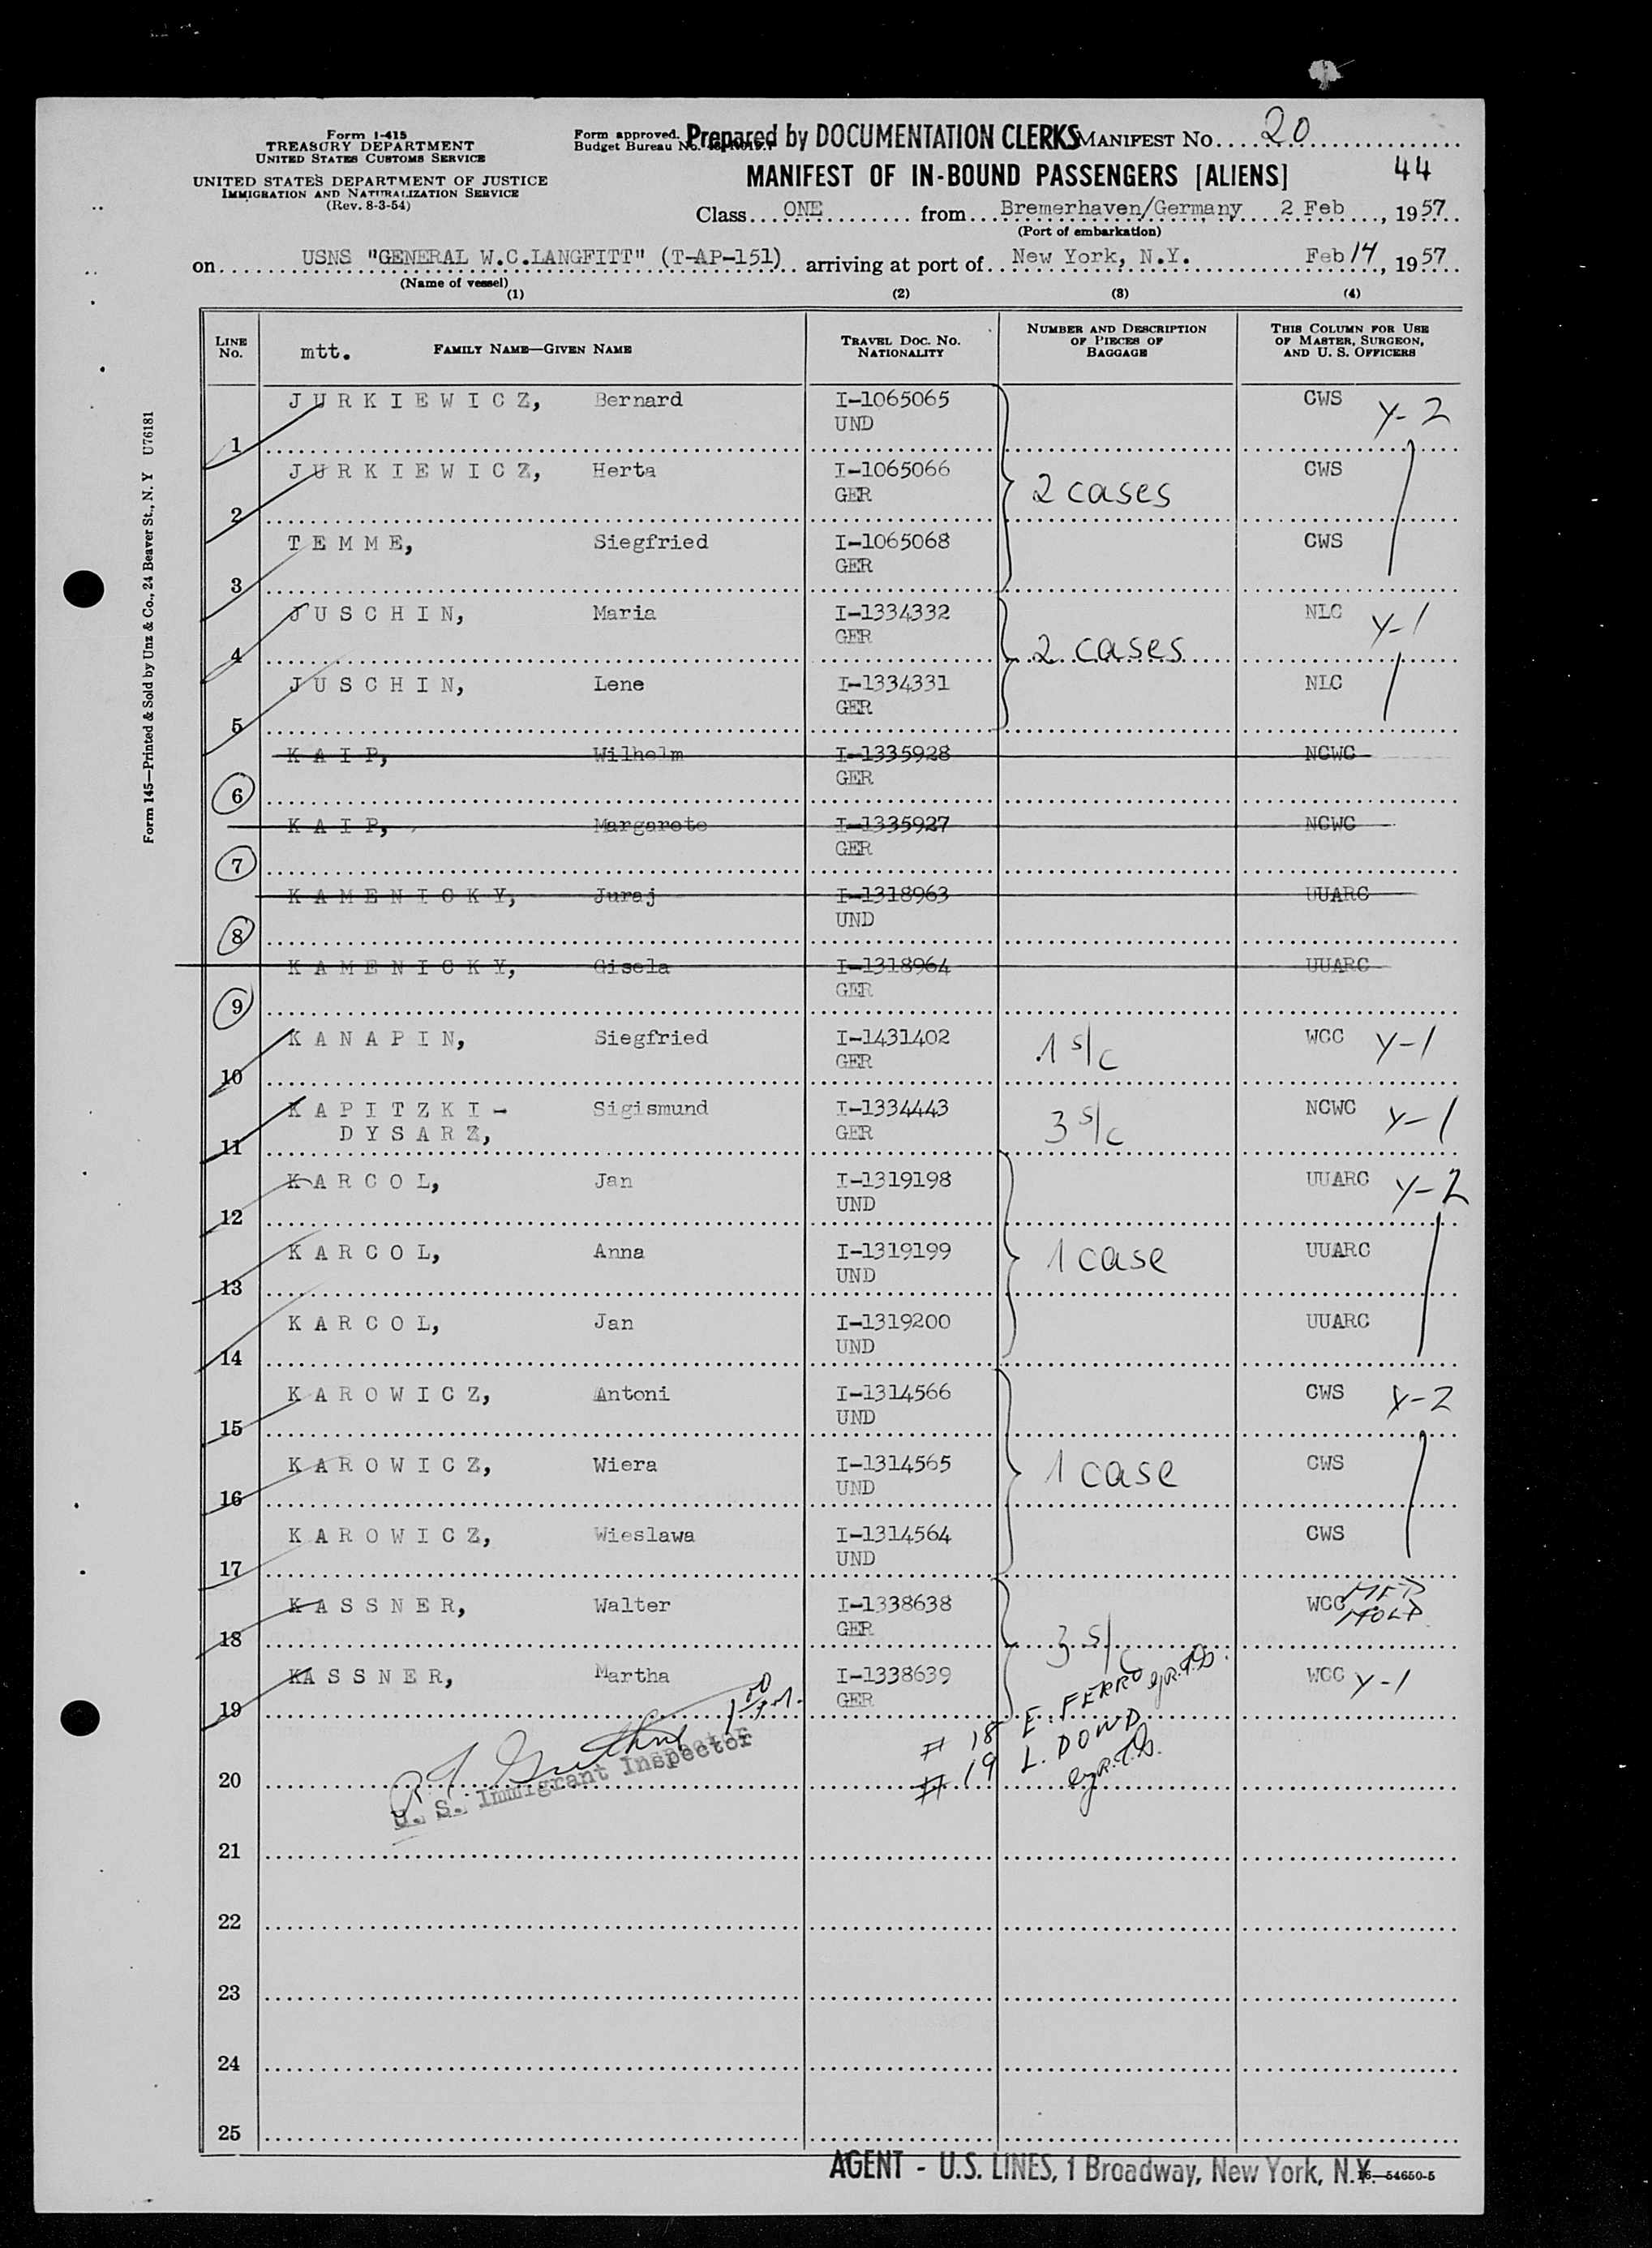 Form I-415
TREASURY DEPARTMENT
UNITED STATES CUSTOMS SERVICE
UNITED STATES DEPARTMENT OF JUSTICE
IMMIGRATION AND NATURALIZATION SERVICE
(Rev. 8-3-54)
Form approved.
Budget Bureau No.
Prepared by DOCUMENTATION CLERKS
MANIFEST NO. 20
MANIFEST OF IN-BOUND PASSENGERS [ALIENS]
44
Class ONE from Bremerhaven/Germany 2 Feb, 1957
(Port of embarkation)
on USNS "GENERAL W.C.LANGFITT" (T-AP-151) arriving at port of New York, N.Y. Feb 14, 1957
(Name of vessel)
(1) (2) (3) (4)
LINE NO. mtt. FAMILY NAME—GIVEN NAME TRAVEL DOC. NO. NATIONALITY NUMBER AND DESCRIPTION OF PIECES OF BAGGAGE THIS COLUMN FOR USE OF MASTER, SURGEON, AND U. S. OFFICERS
1 JURKIEWICZ, Bernard I-1065065 UND CWS Y-2
2 JURKIEWICZ, Herta I-1065066 GER 2 cases CWS
3 TEMME, Siegfried I-1065068 GER CWS
4 JUSCHIN, Maria I-1334332 GER 2 cases NLC Y-1
5 JUSCHIN, Lene I-1334331 GER NLC
6 KAIP, Wilhelm I-1335928 GER NCWC
7 KAIP, Margarete I-1335927 GER NCWC
8 KAMENICKY, Juraj I-1318963 UND UUARC
9 KAMENICKY, Gisela I-1318964 GER UUARC
10 KANAPIN, Siegfried I-1431402 GER 1 s/c WCC Y-1
11 KAPITZKI-DYSARZ, Sigismund I-1334443 GER 3 s/c NCWC Y-1
12 KARCOL, Jan I-1319198 UND UUARC Y-2
13 KARCOL, Anna I-1319199 UND 1 case UUARC
14 KARCOL, Jan I-1319200 UND UUARC
15 KAROWICZ, Antoni I-1314566 UND CWS Y-2
16 KAROWICZ, Wiera I-1314565 UND 1 case CWS
17 KAROWICZ, Wieslawa I-1314564 UND CWS
18 KASSNER, Walter I-1338638 GER 3 s/c WCC MED HOLD
19 KASSNER, Martha I-1338639 GER WCC Y-1
# 18 E. FERRO
# 19 L. DOWD
20
U. S. Immigrant Inspector
21
22
23
24
25
AGENT - U.S. LINES, 1 Broadway, New York, N.Y.
16—54650-5
Form 145—Printed & Sold by Unz & Co., 24 Beaver St., N. Y U76181